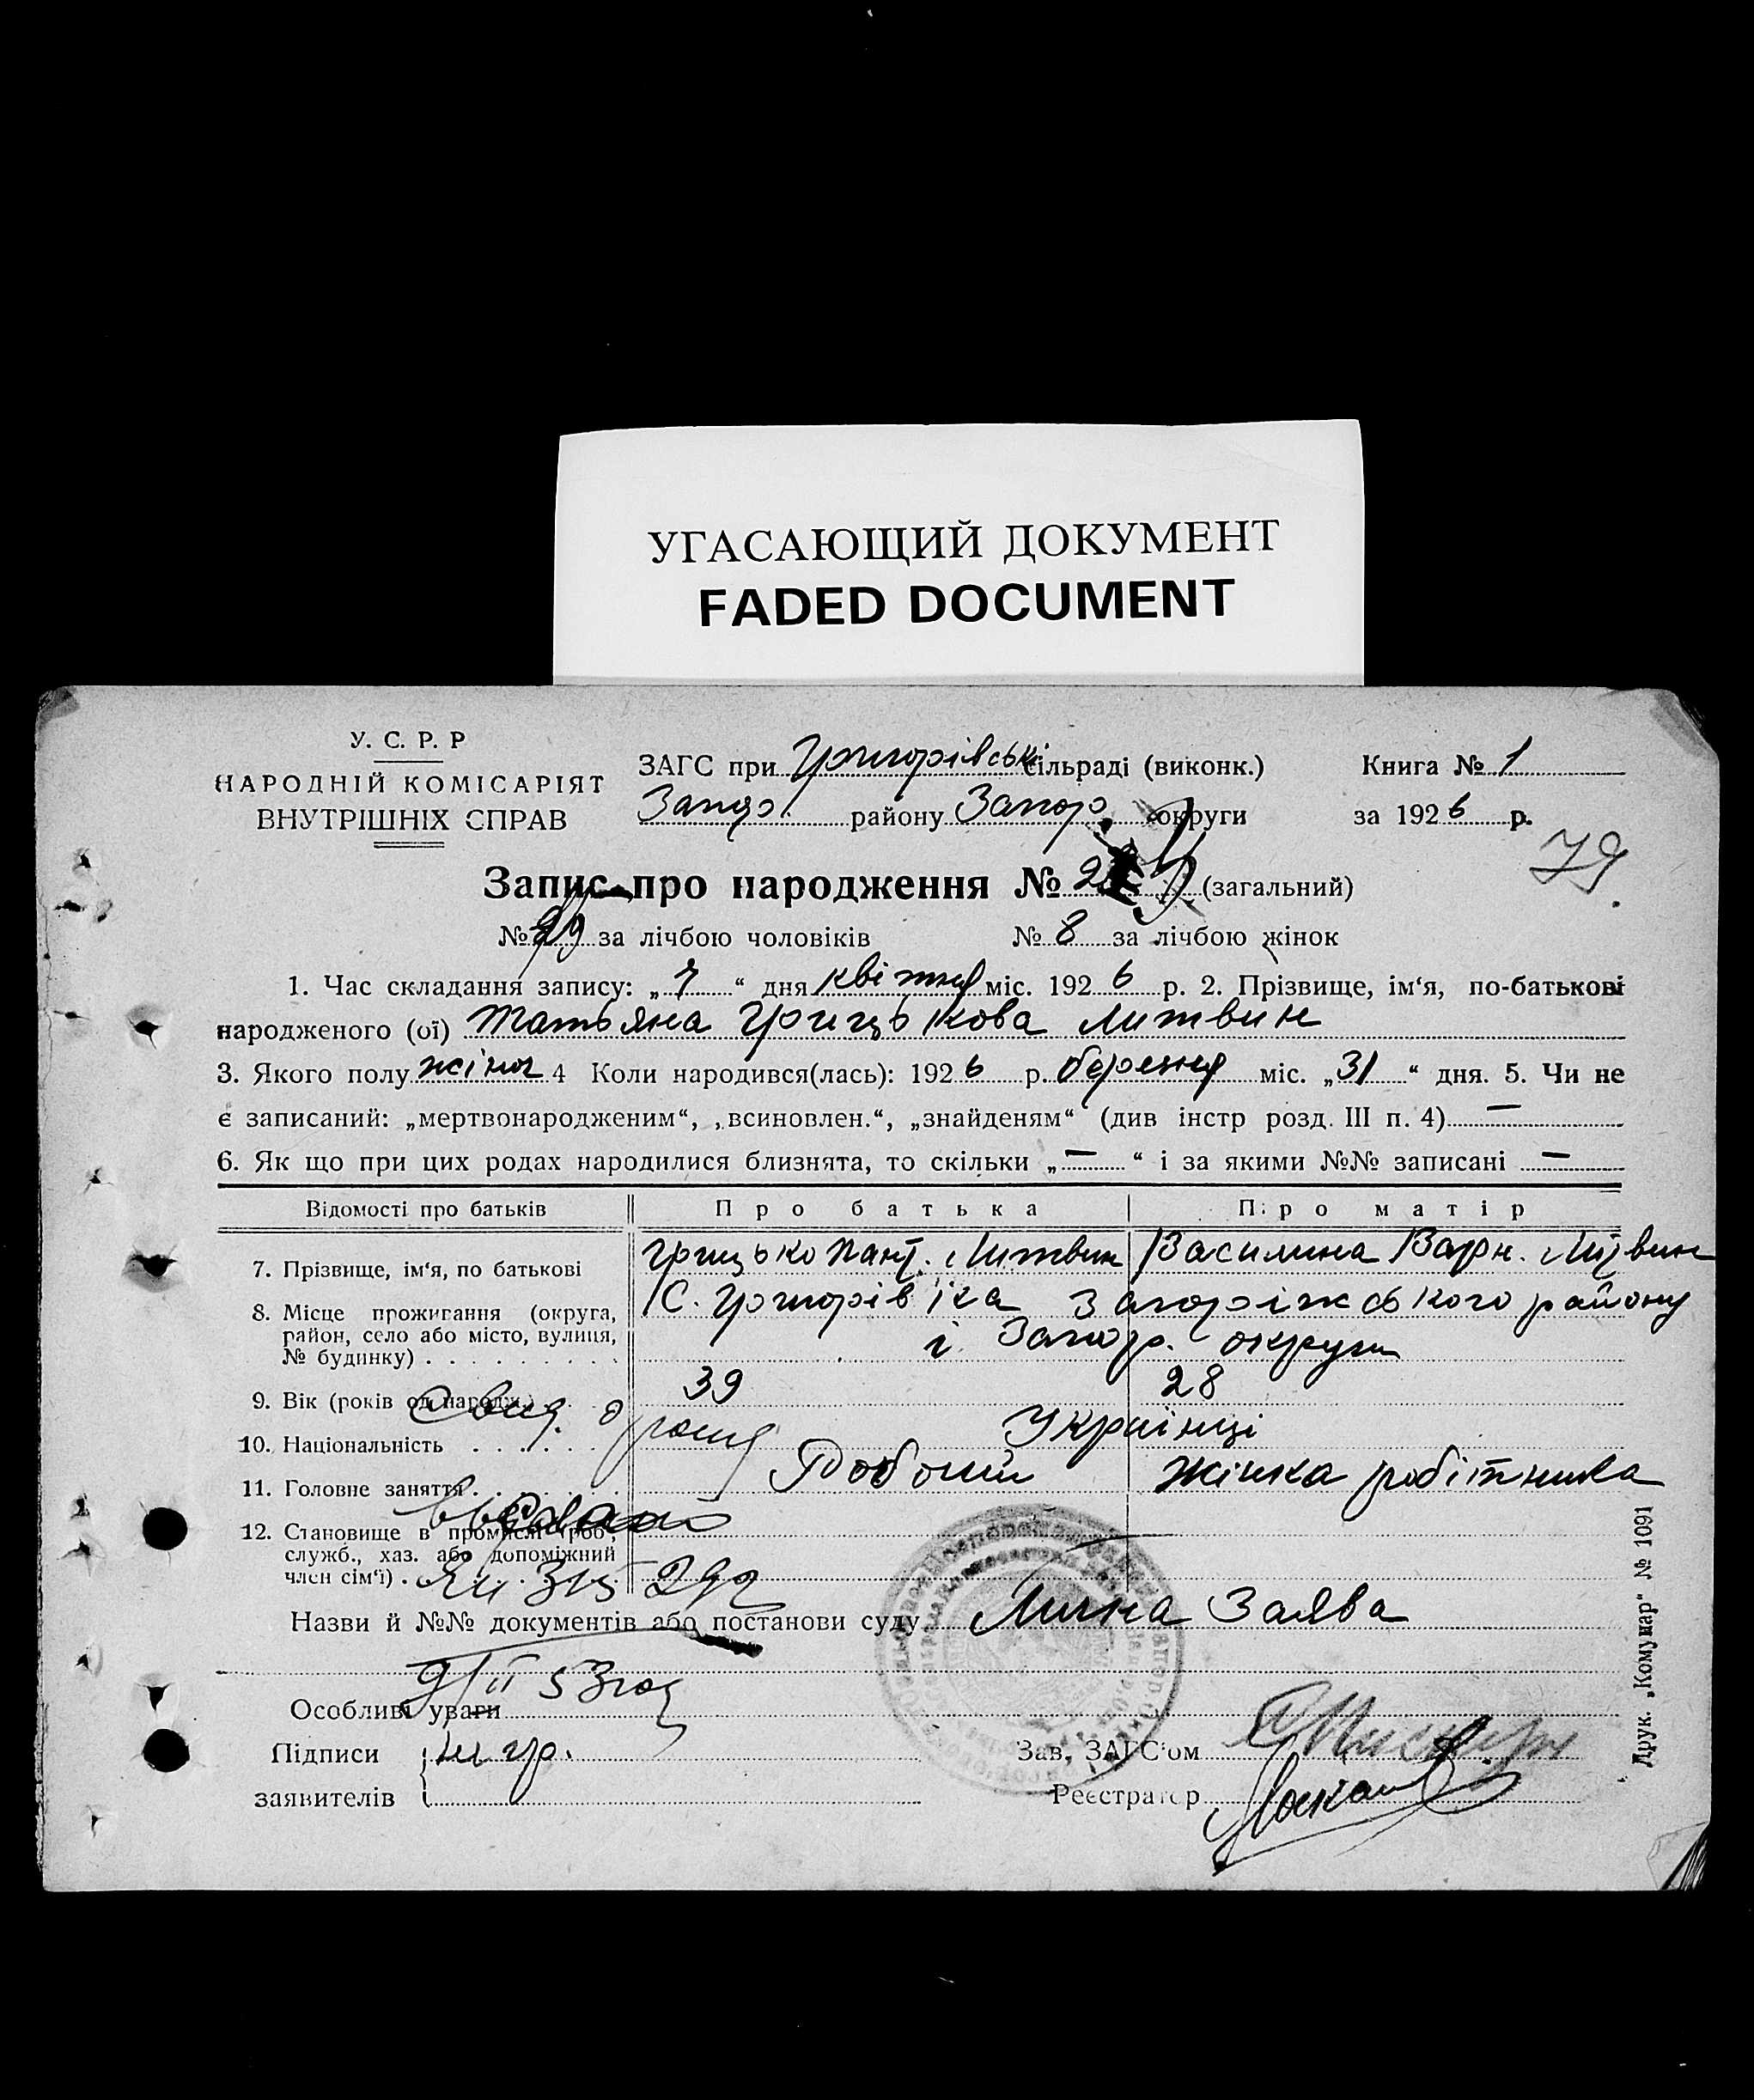 УГАСАЮЩИЙ ДОКУМЕНТ
FADED DOCUMENT
У. С. Р. Р
НАРОДНІЙ КОМІСАРІЯТ
ВНУТРІШНІХ СПРАВ
ЗАГС при Григорівській сільраді (виконк.)
Запор. району Запор. округи
Книга № 1
за 1926 р.
79
Запис про народження № (загальний)
№ за лічбою чоловіків № 8 за лічбою жінок
1. Час складання запису: „7“ дня квітня міс. 1926 р. 2. Прізвище, ім‘я, по-батькові
народженого (ої) Татьяна Грицькова Литвин
3. Якого полу жіноч 4 Коли народився(лась): 1926 р. березня міс. „31“ дня. 5. Чи не
є записаний: „мертвонародженим“, „всиновлен.“, „знайденям“ (див інстр розд. III п. 4) —
6. Як що при цих родах народилися близнята, то скільки „—“ і за якими №№ записані —
Відомості про батьків Про батька Про матір
7. Прізвище, ім‘я, по батькові Грицько Пант. Литвин Василина Варн. Литвин
8. Місце проживання (округа,
район, село або місто, вулиця,
№ будинку)
С. Григорівка Запоріжського району
і Запор. округи
9. Вік (років од народж.) 39 28
10. Національність Українці
11. Головне заняття Робочий Жінка робітника
12. Становище в промислі (роб.,
служб., хаз. або допоміжний
член сім‘ї)
Назви й №№ документів або постанови суду Лична Заява
9/II 53год
Особливі уваги
Підписи
заявителів
Зав. ЗАГС‘ом
Реєстратор
Друк. „Комунар“ № 1091